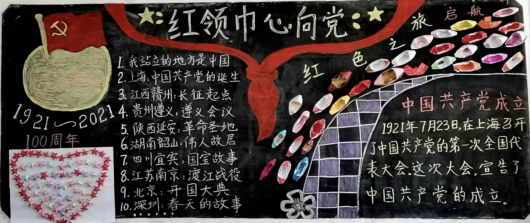 红领巾心向党
红色之旅启航
1921~2021
100周年
1.我站立的地方是中国
2.上海:中国共产党的诞生
3.江西赣州:长征起点
4.贵州遵义:遵义会议
5.陕西延安:革命圣地
6.湖南韶山:伟人故居
7.四川宜宾:国宝故事
8.江苏南京:渡江战役
9.北京:开国大典
10.深圳:春天的故事
中国共产党成立
1921年7月23日,在上海召开
了中国共产党的第一次全国代
表大会.这次大会,宣告了
中国共产党的成立.